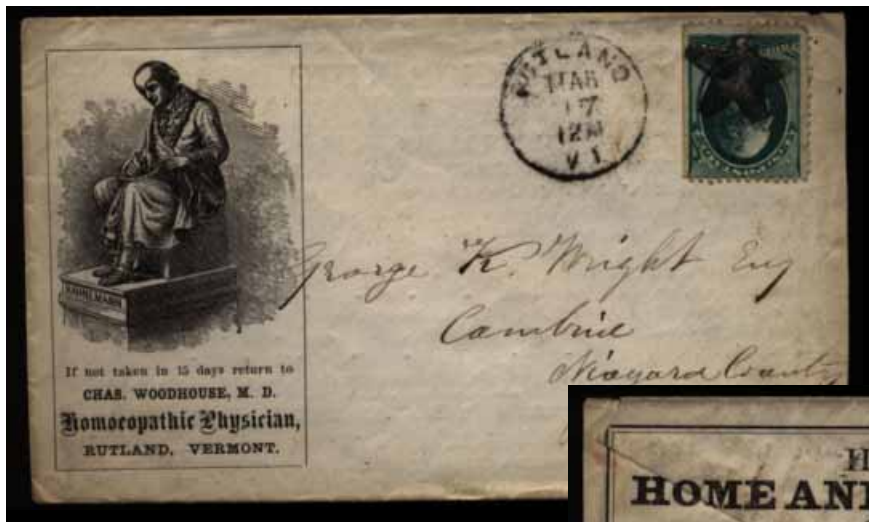 HAHNEMANN
If not taken in 15 days return to
CHAS. WOODHOUSE, M. D.
Homoeopathic Physician,
RUTLAND, VERMONT.
RUTLAND
MAR
17
12M
VT
George K. Wright Esq
Cambria
Niagara County
HOME AN